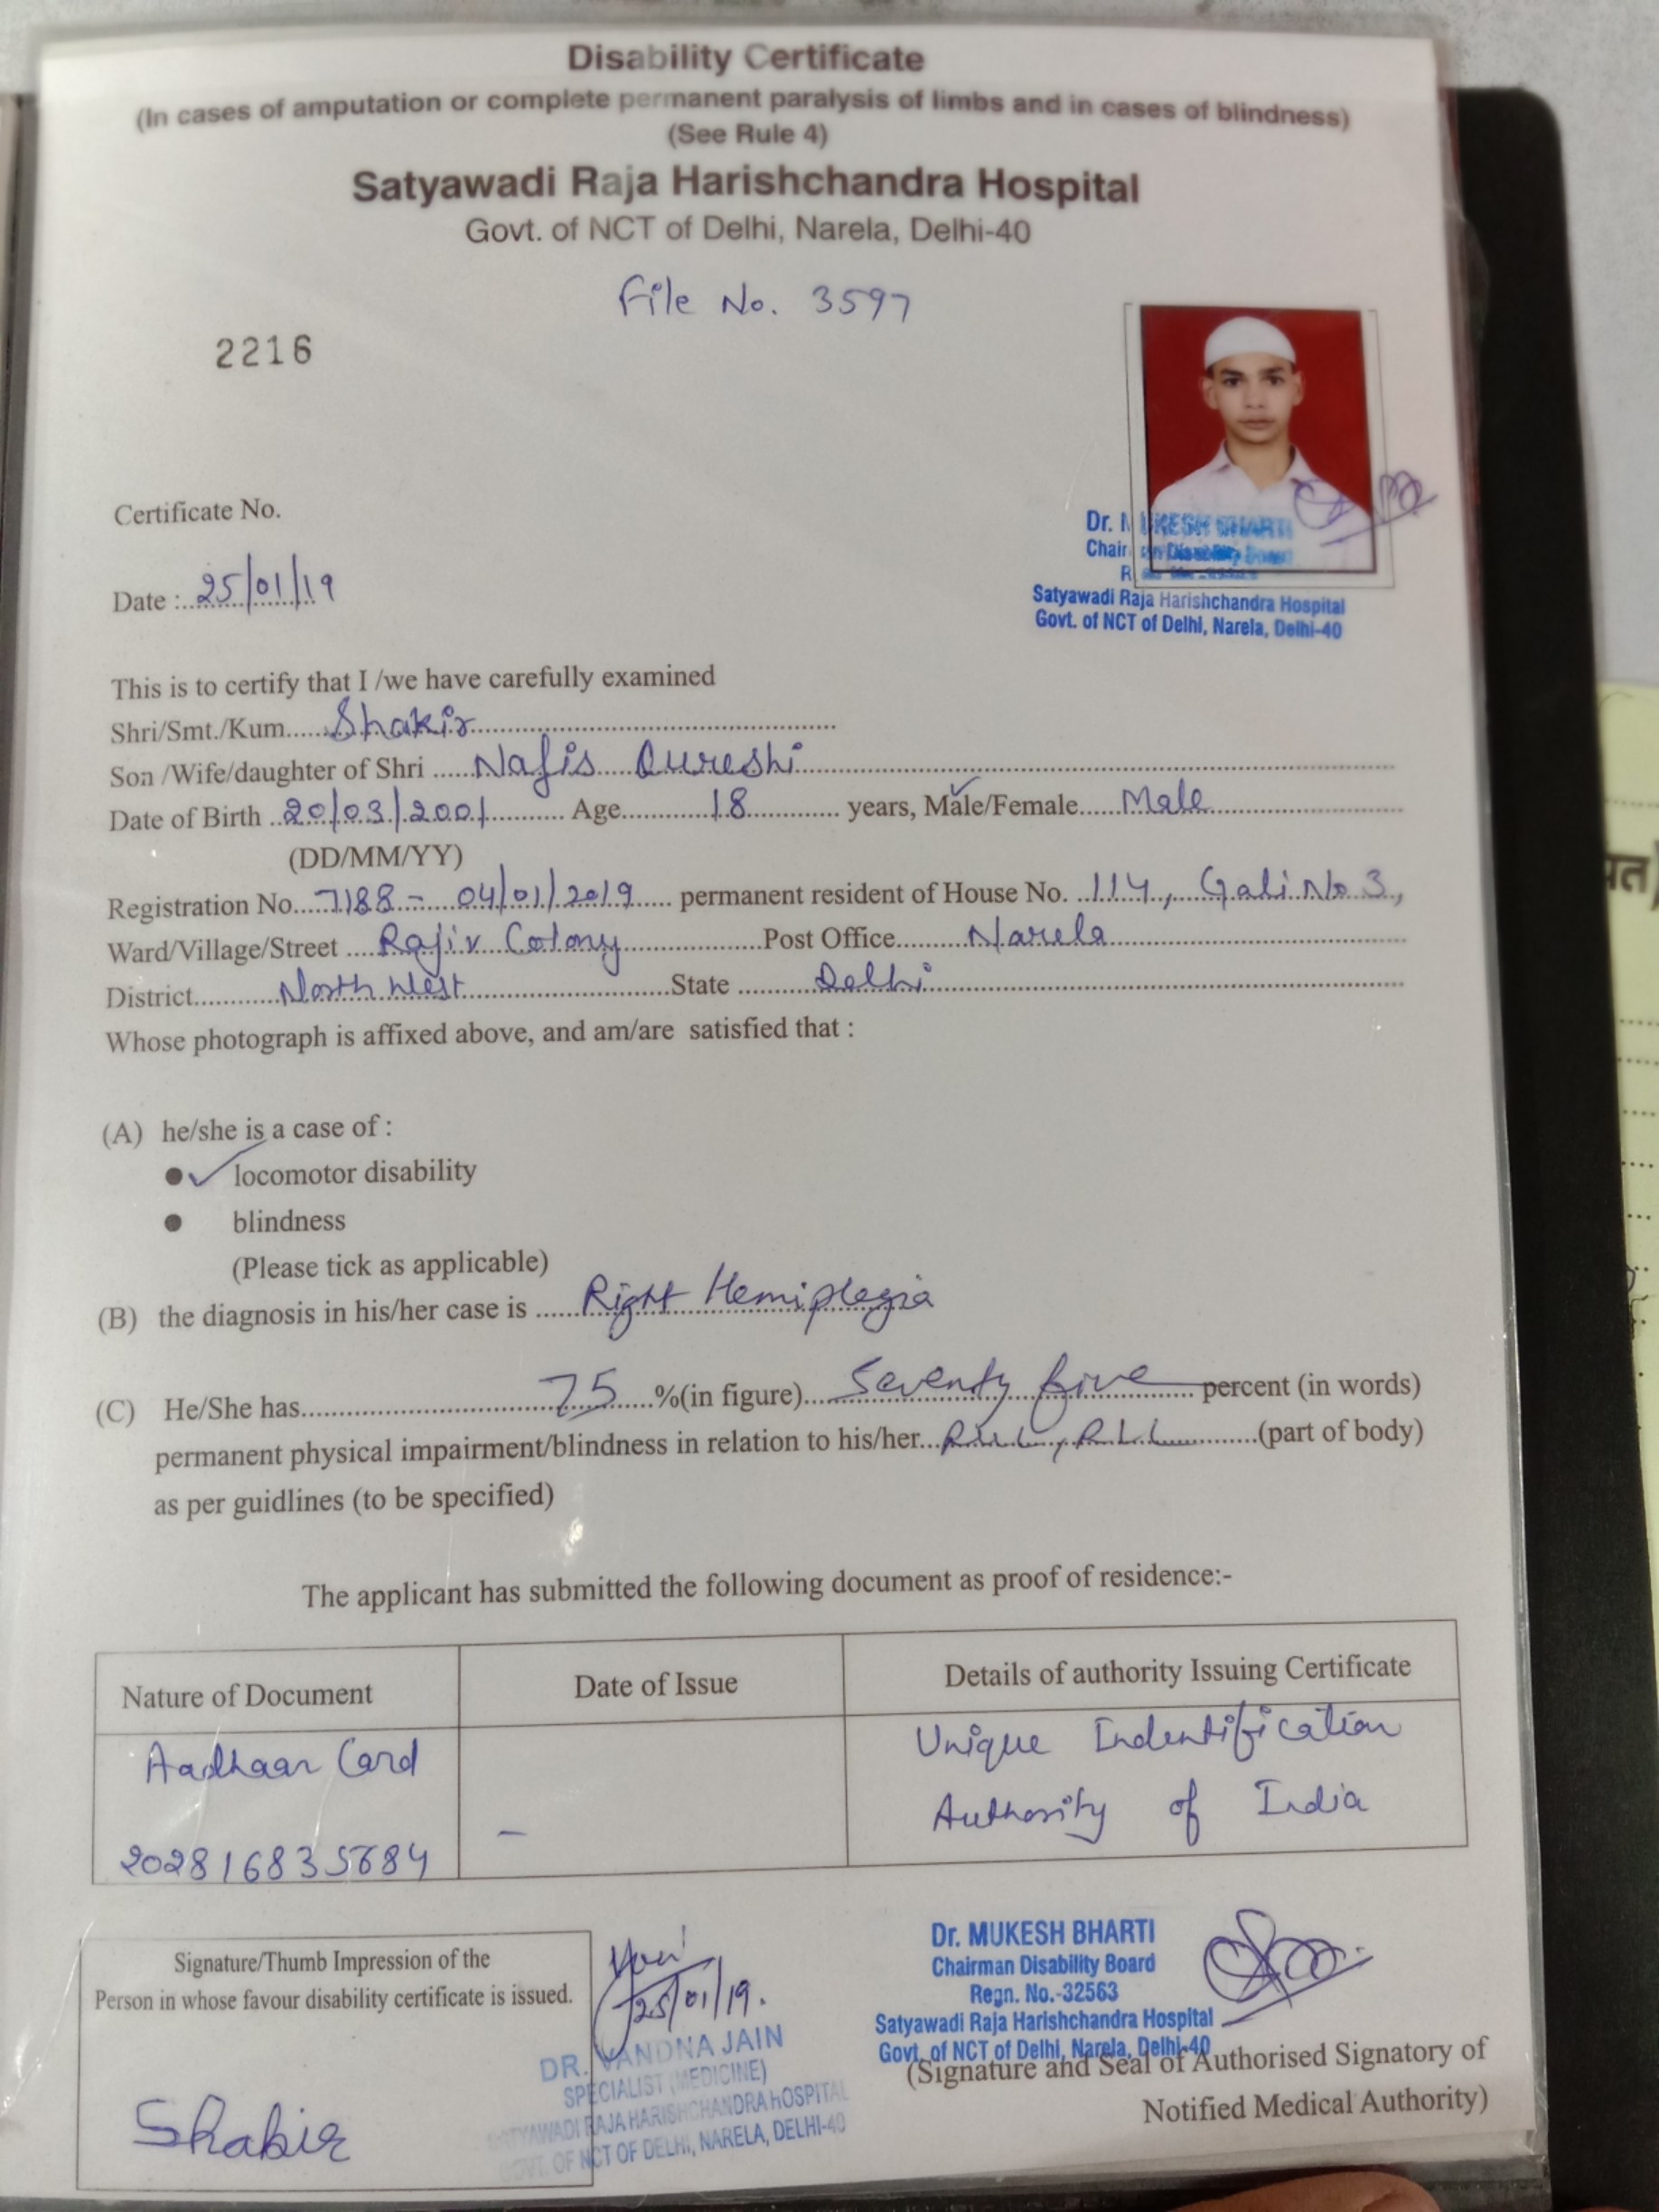 Disability Certificate
(In cases of amputation or complete permanent paralysis of limbs and in cases of blindness)
(See Rule 4)
Satyawadi Raja Harishchandra Hospital
Govt. of NCT of Delhi, Narela, Delhi-40
File No. 3597
2216
Certificate No.
Dr. MUKESH BHARTI
Satyawadi Raja Harishchandra Hospital
Govt. of NCT of Delhi, Narela, Delhi-40
Date : 25/01/19
This is to certify that I /we have carefully examined
Shri/Smt./Kum. Shakir
Son /Wife/daughter of Shri Nafis Qureshi
Date of Birth 20/03/2001 Age 18 years, Male/Female Male
(DD/MM/YY)
Registration No. 7188 - 04/01/2019 permanent resident of House No. 114, Gali No. 3,
Ward/Village/Street Rajiv Colony Post Office Narela
District North West State Delhi
Whose photograph is affixed above, and am/are satisfied that :
(A) he/she is a case of :
● ✓ locomotor disability
● blindness
(Please tick as applicable)
(B) the diagnosis in his/her case is Right Hemiplegia
(C) He/She has 75 %(in figure) Seventy five percent (in words)
permanent physical impairment/blindness in relation to his/her RUL, RLL (part of body)
as per guidlines (to be specified)
The applicant has submitted the following document as proof of residence:-
Nature of Document Date of Issue Details of authority Issuing Certificate
Aadhaar Card Unique Indentification
Authority of India
202816835684 -
Signature/Thumb Impression of the
Person in whose favour disability certificate is issued.
Shakir
25/01/19.
DR. VANDNA JAIN
SPECIALIST (MEDICINE)
SATYAWADI RAJA HARISHCHANDRA HOSPITAL
GOVT. OF NCT OF DELHI, NARELA, DELHI-40
Dr. MUKESH BHARTI
Chairman Disability Board
Regn. No.-32563
Satyawadi Raja Harishchandra Hospital
Govt. of NCT of Delhi, Narela, Delhi-40
(Signature and Seal of Authorised Signatory of
Notified Medical Authority)